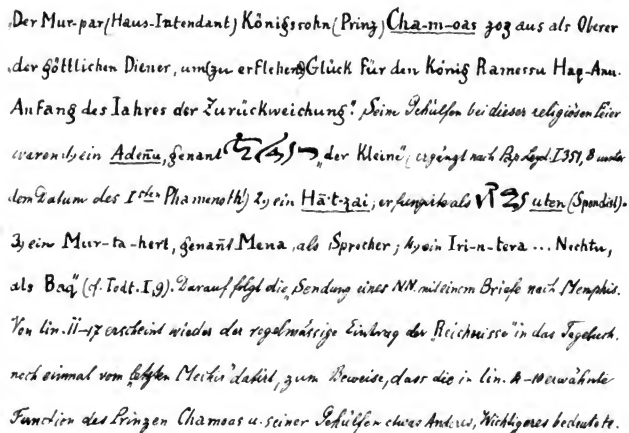 Der Mur-par (Haus-Intendant) Königssohn (Prinz) Cha-m-oas zog aus als Oberer
der göttlichen Diener, um (zu erflehen) Glück für den König Ramessu Haq-Anu.
Anfang des Iahres der Zurückweichung". Seine Gehülfen bei dieser religiösen Feier
waren 1, ein Adenu, genant „der Kleine" (ergänzt nach Pap. Leyd. I 351, 8 unter
dem Datum des I sten Phamenoth!) 2, ein Hā-t-zai; er fungirte als uten (Spondist).
3, ein Mur-ta-hert, genañt Mena, als Sprecher; 4, ein Iri-n-tera ... Nechtu,
als Baq" (cf. Todt. I, 9). Darauf folgt die „Sendung eines NN. mit einem Briefe nach Memphis.
Von lin. 11–17 erscheint wieder der regelmässige Eintrag der „Reichnisse" in das Tagebuch,
noch einmal vom „letzten Mechir" datirt, zum Beweise, dass die in lin. 4–10 erwähnte
Function des Prinzen Chamoas u. seiner Gehülfen etwas Anderes, Wichtigeres bedeutete.